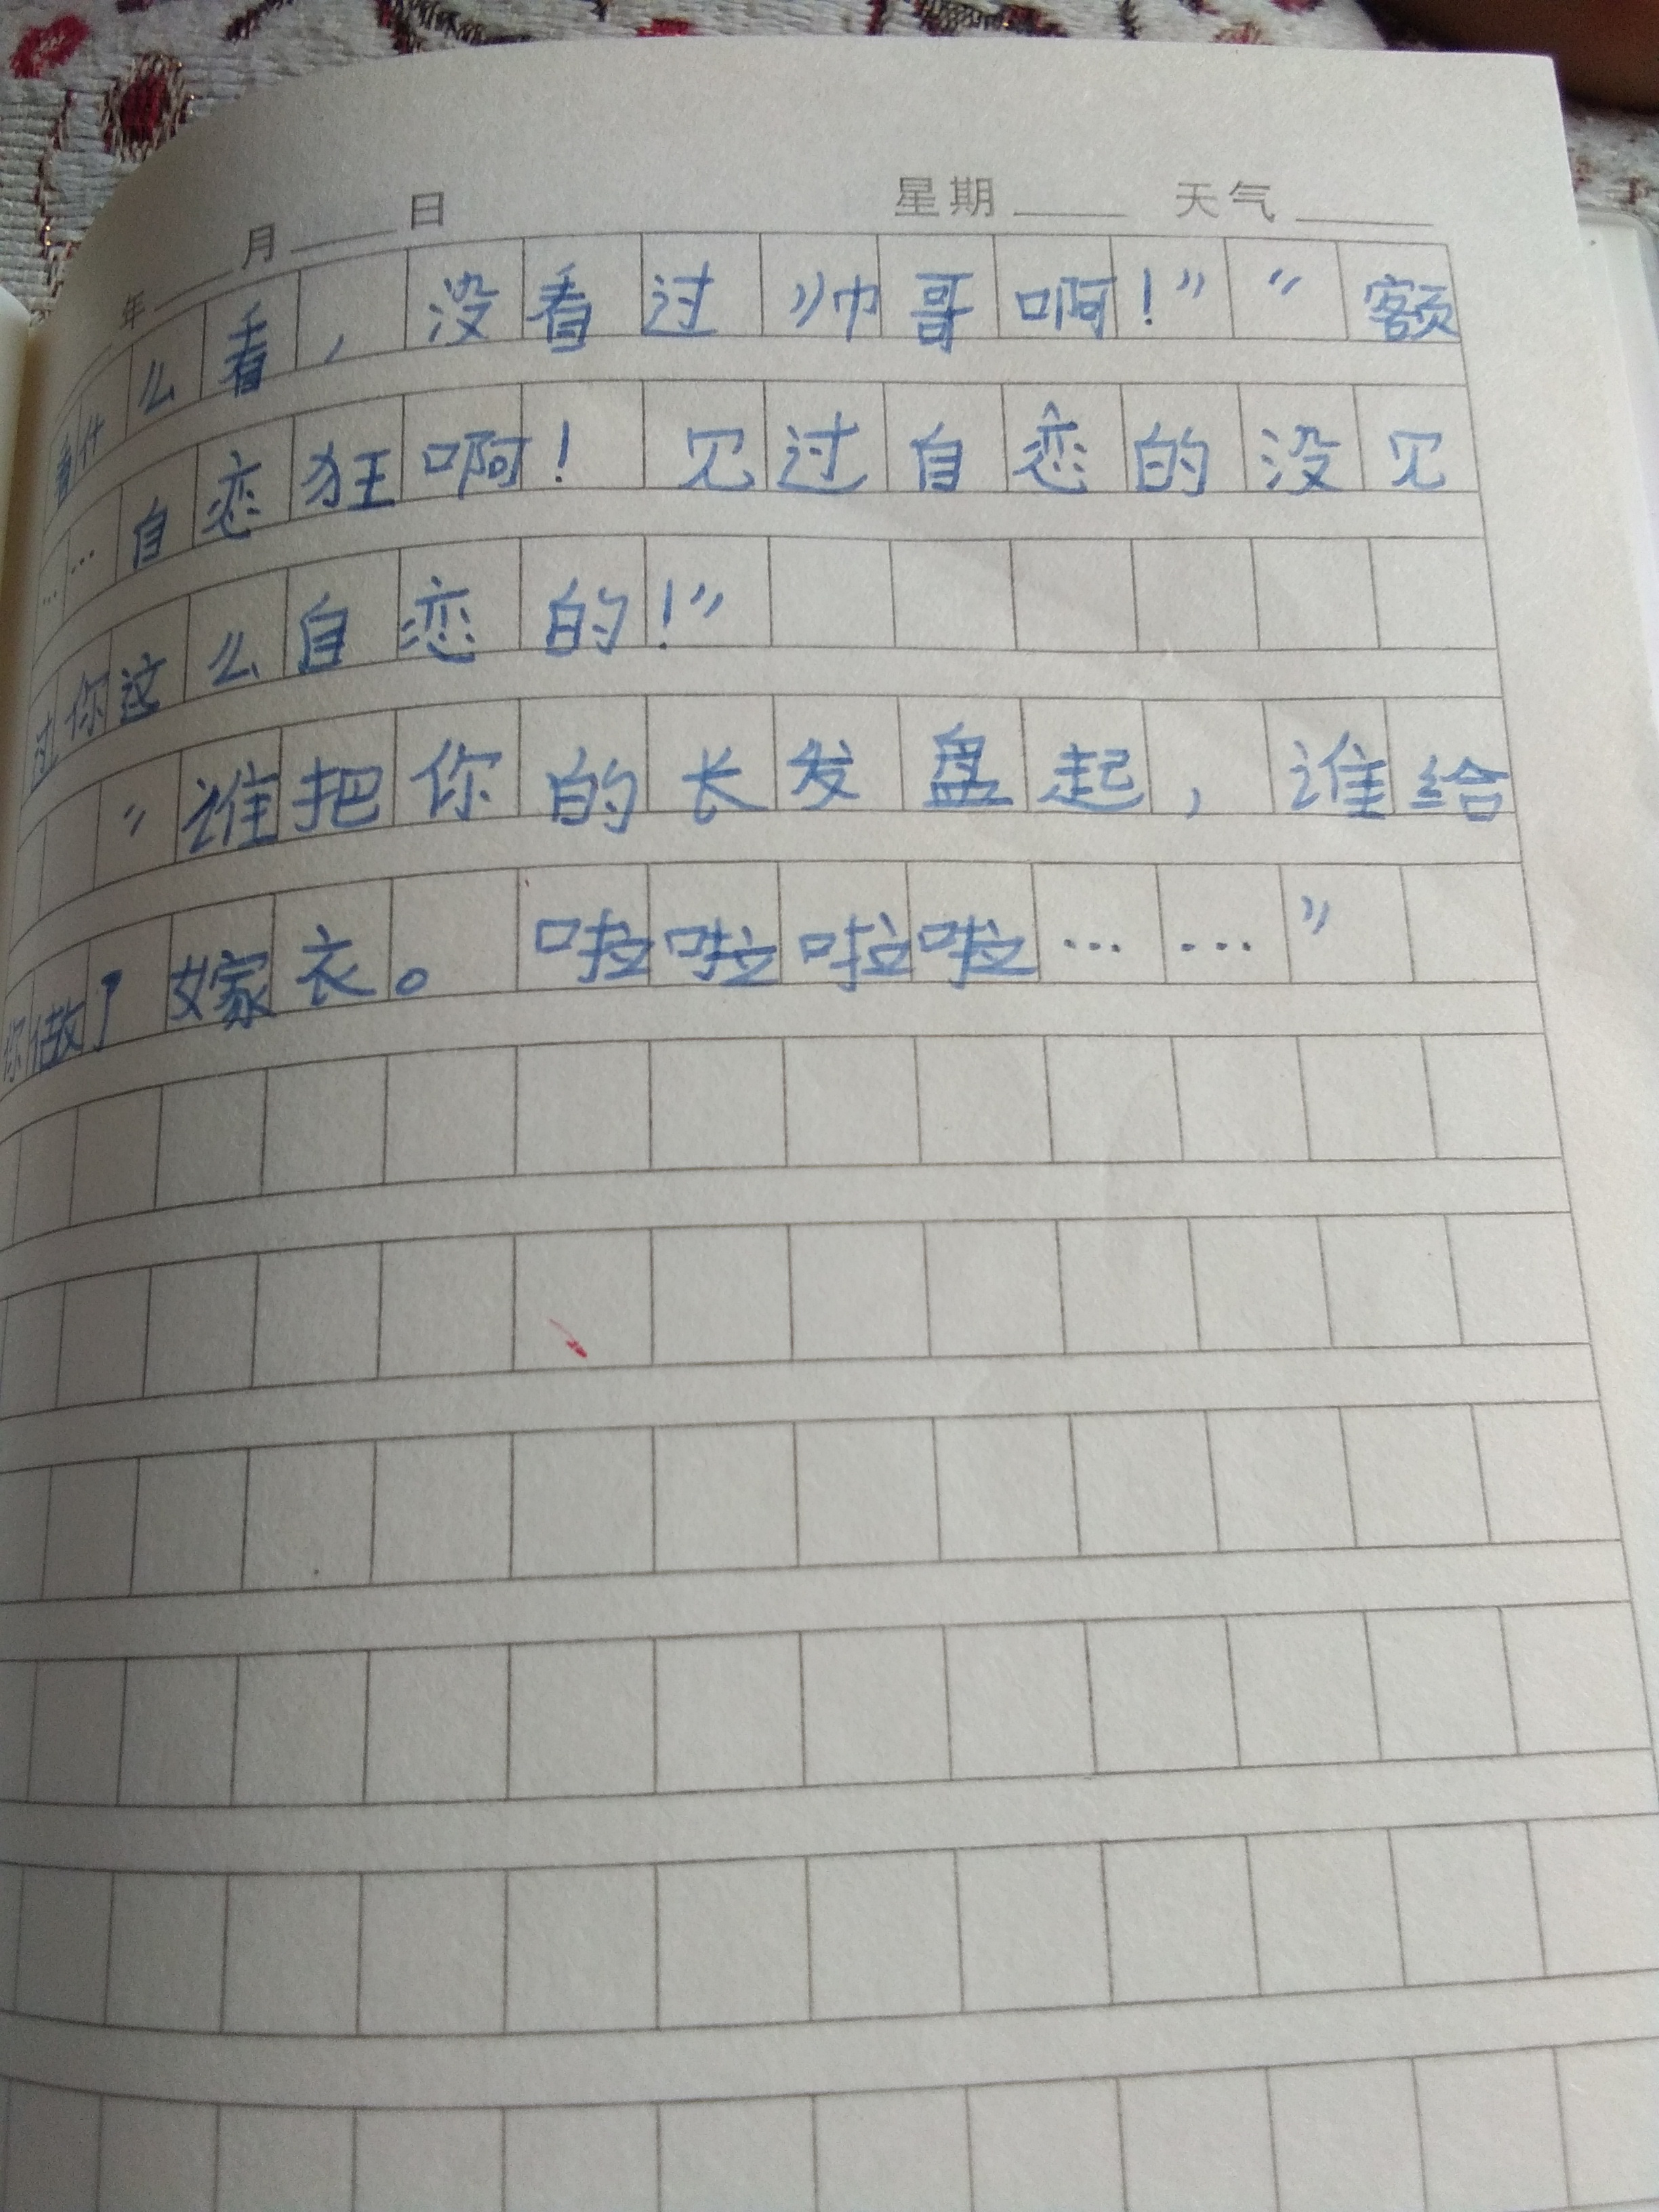 年 月 日 星期 天气
看什么看，没看过帅哥啊！” “额
……自恋狂啊！见过自恋的没见
过你这么自恋的！”
“谁把你的长发盘起，谁给
你做了嫁衣。啦啦啦啦……”